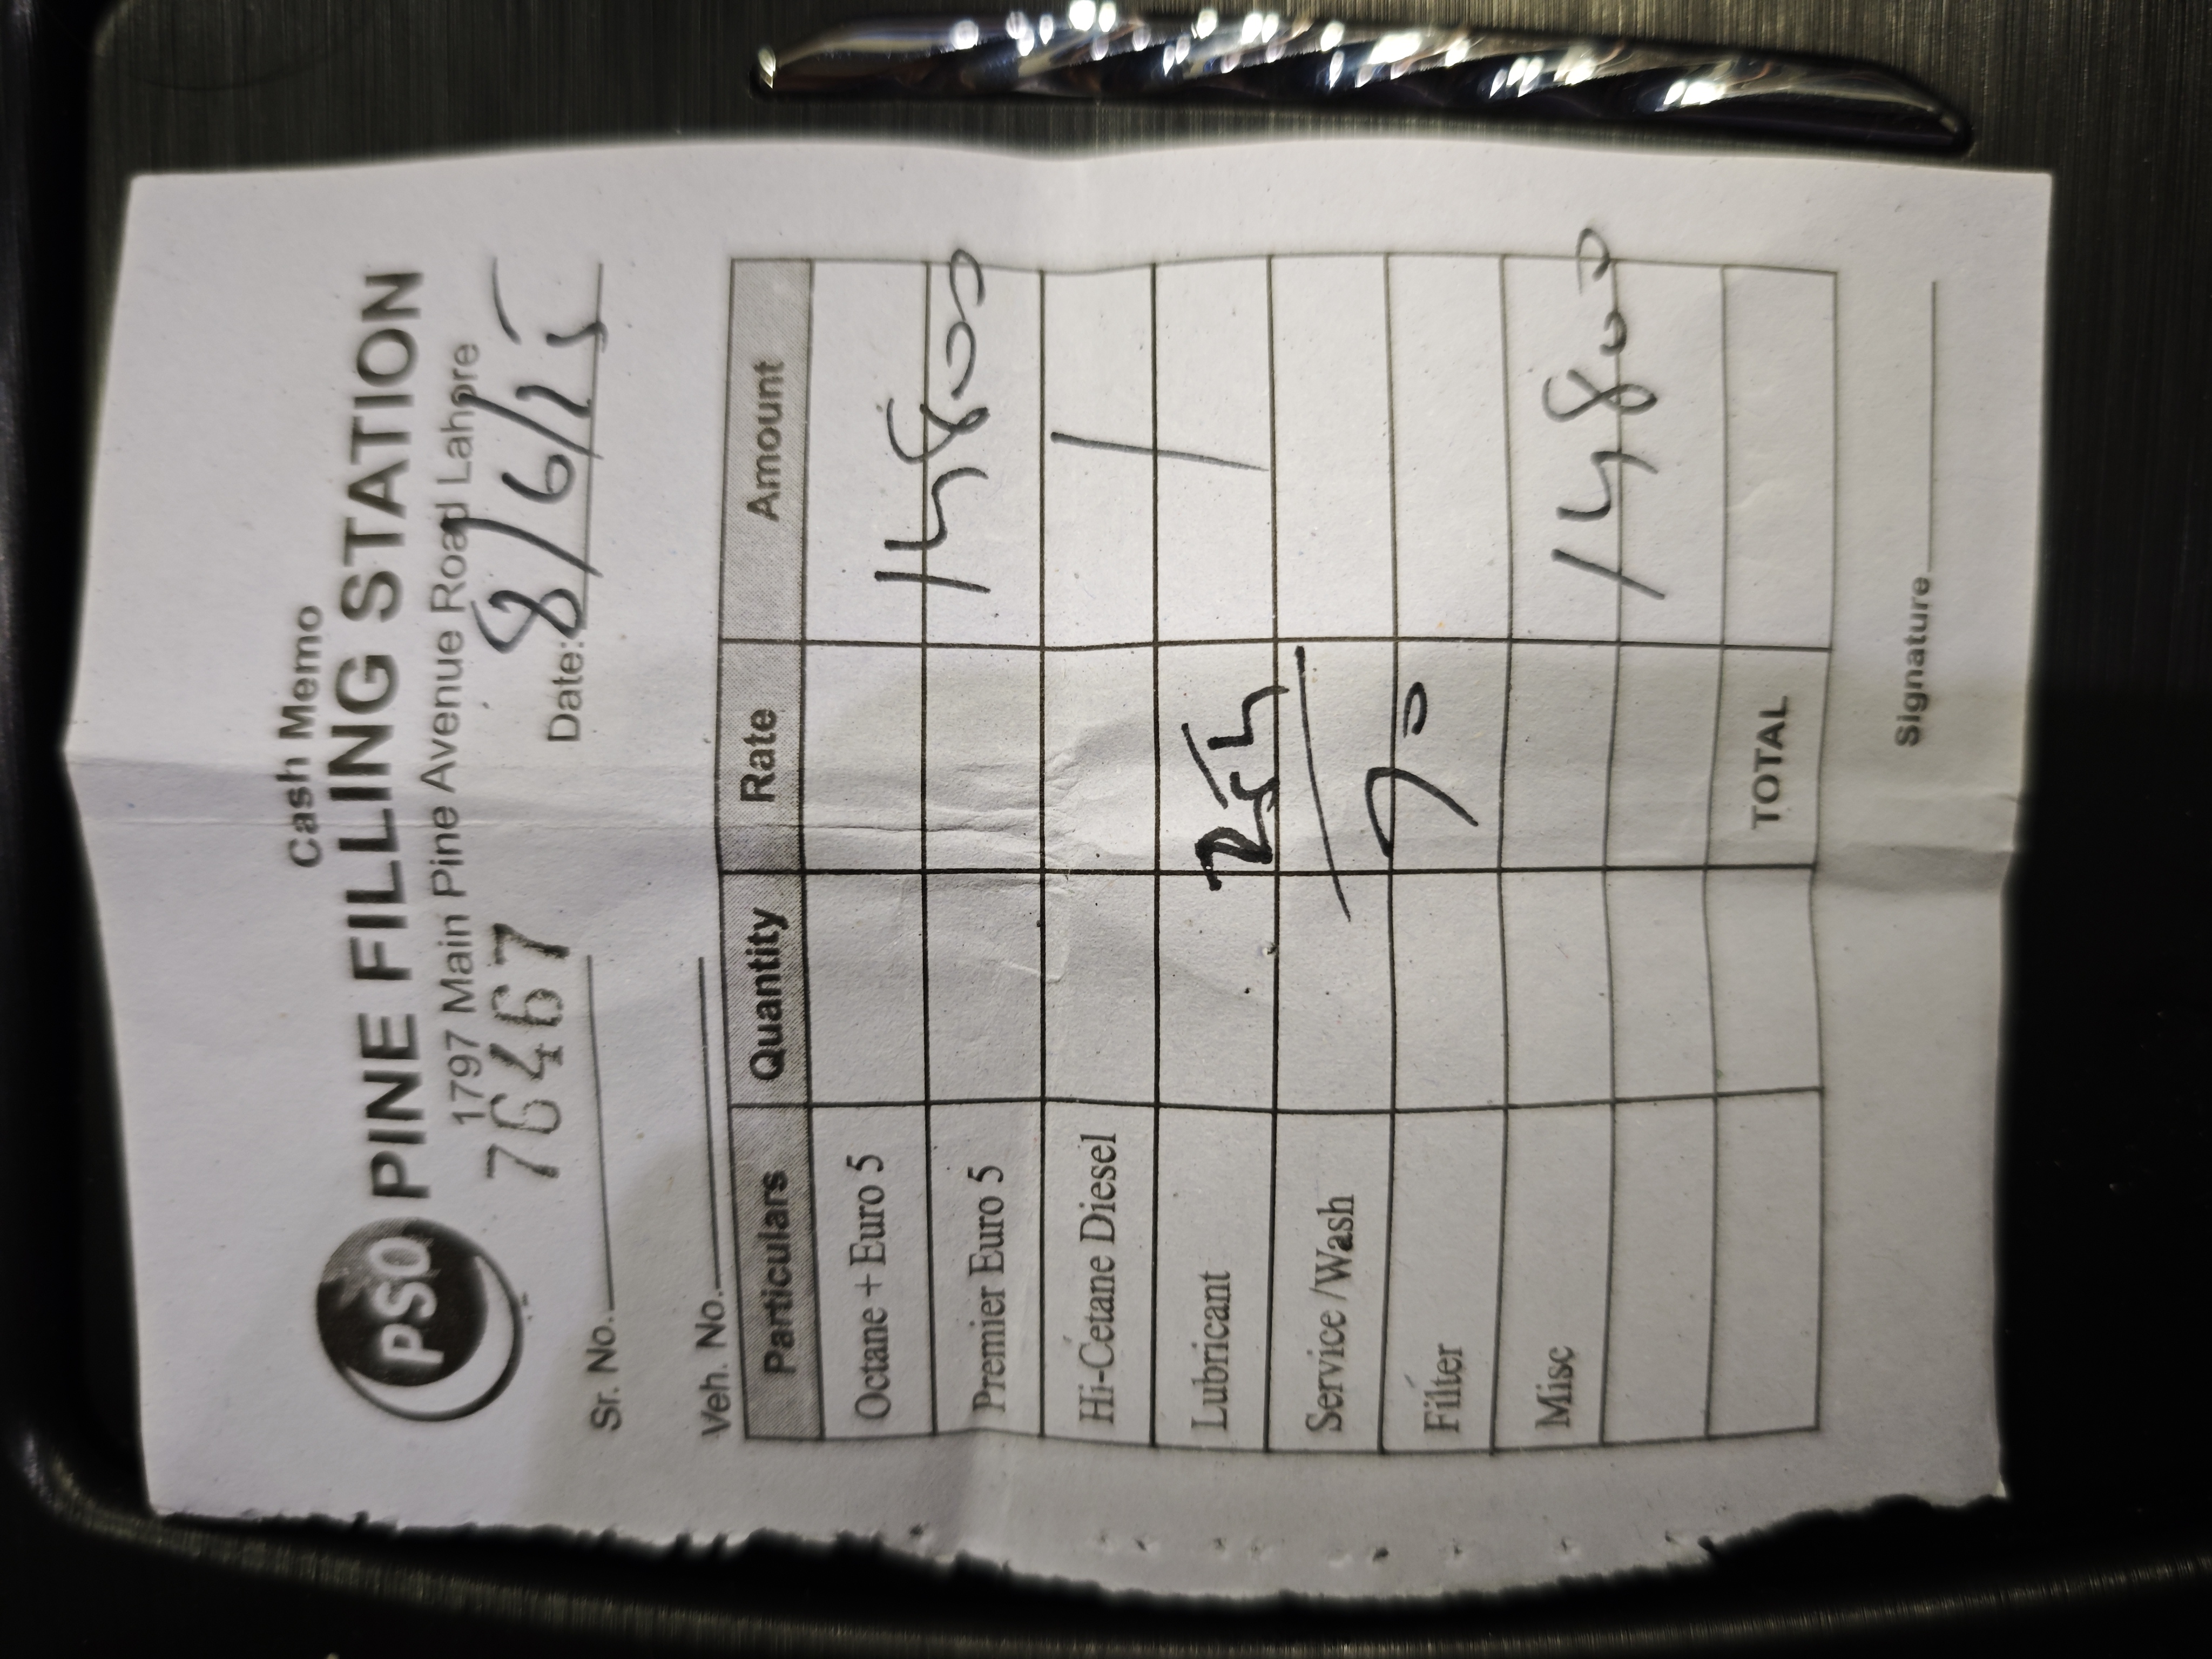 Cash Memo
PSO PINE FILLING STATION
1797 Main Pine Avenue Road Lahore
76467
Sr. No. Date: 8/6/25
Veh. No.
Particulars Quantity Rate Amount
Octane + Euro 5
Premier Euro 5 14800
Hi-Cetane Diesel
Lubricant 254
Service /Wash
Filter 70
Misc 14800
TOTAL
Signature